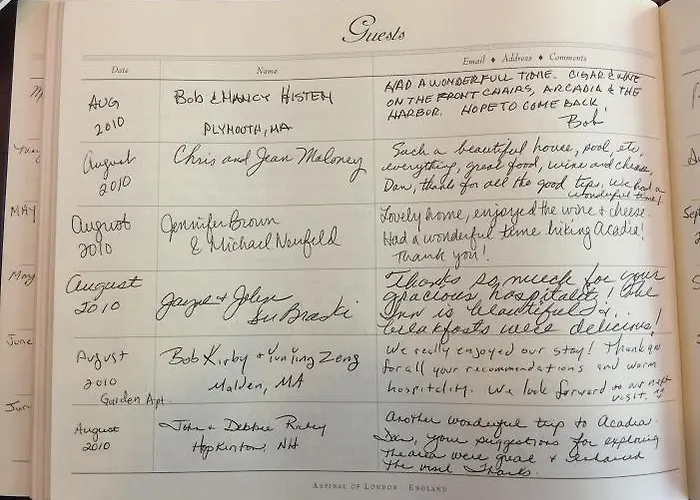 Guests
Date Name Email ♦ Address ♦ Comments
AUG
2010
Bob & NANCY HISTEN
PLYMOUTH, MA
HAD A WONDERFULL TIME. CIGAR & WINE
ON THE FRONT CHAIRS, ARCADIA & THE
HARBOR. HOPE TO COME BACK!
Bob
August
2010
Chris and Jean Maloney
Such a beautiful house, pool, etc,
everything, great food, wine and cheese,
Dan, thanks for all the good tips, we had a
wonderful time!
August
2010
Jennifer Brown
& Michael Neufeld
Lovely home, enjoyed the wine + cheese.
Had a wonderful time hiking Acadia!
Thank you!
August
2010
Jayne + John
Thanks so much for your
gracious hospitality! The
Inn is beautiful &
breakfasts were delicious!
August
2010
Garden Apt.
Bob Kirby + Yun Ying Zeng
Malden, MA
We really enjoyed our stay! Thank you
for all your recommendations and warm
hospitality. We look forward to our next
visit.
August
2010
John & Debbie
Hopkinton, NH
Another wonderful trip to Acadia.
Dan, your suggestions for exploring
the area were great & enhanced
the visit. Thanks.
ASPINAL OF LONDON · ENGLAND
MAY
May
June